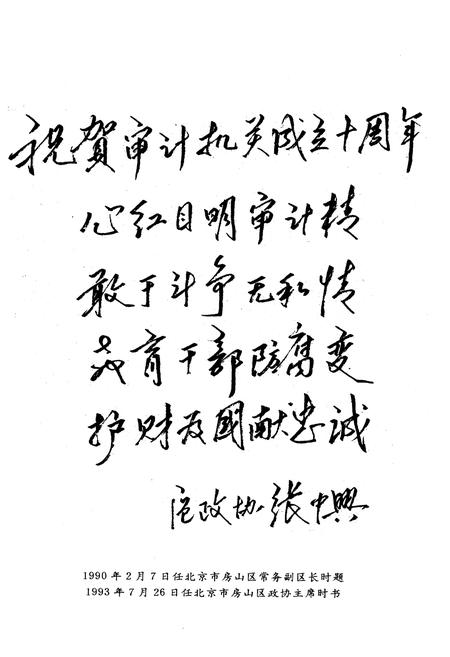 祝賀审计机关成立十周年
心红目明审计精
敢于斗争无私情
教育干部防腐变
护财为國献忠诚
区政协张中興
1990年2月7日任北京市房山区常务副区长时题
1993年7月26日任北京市房山区政协主席时书